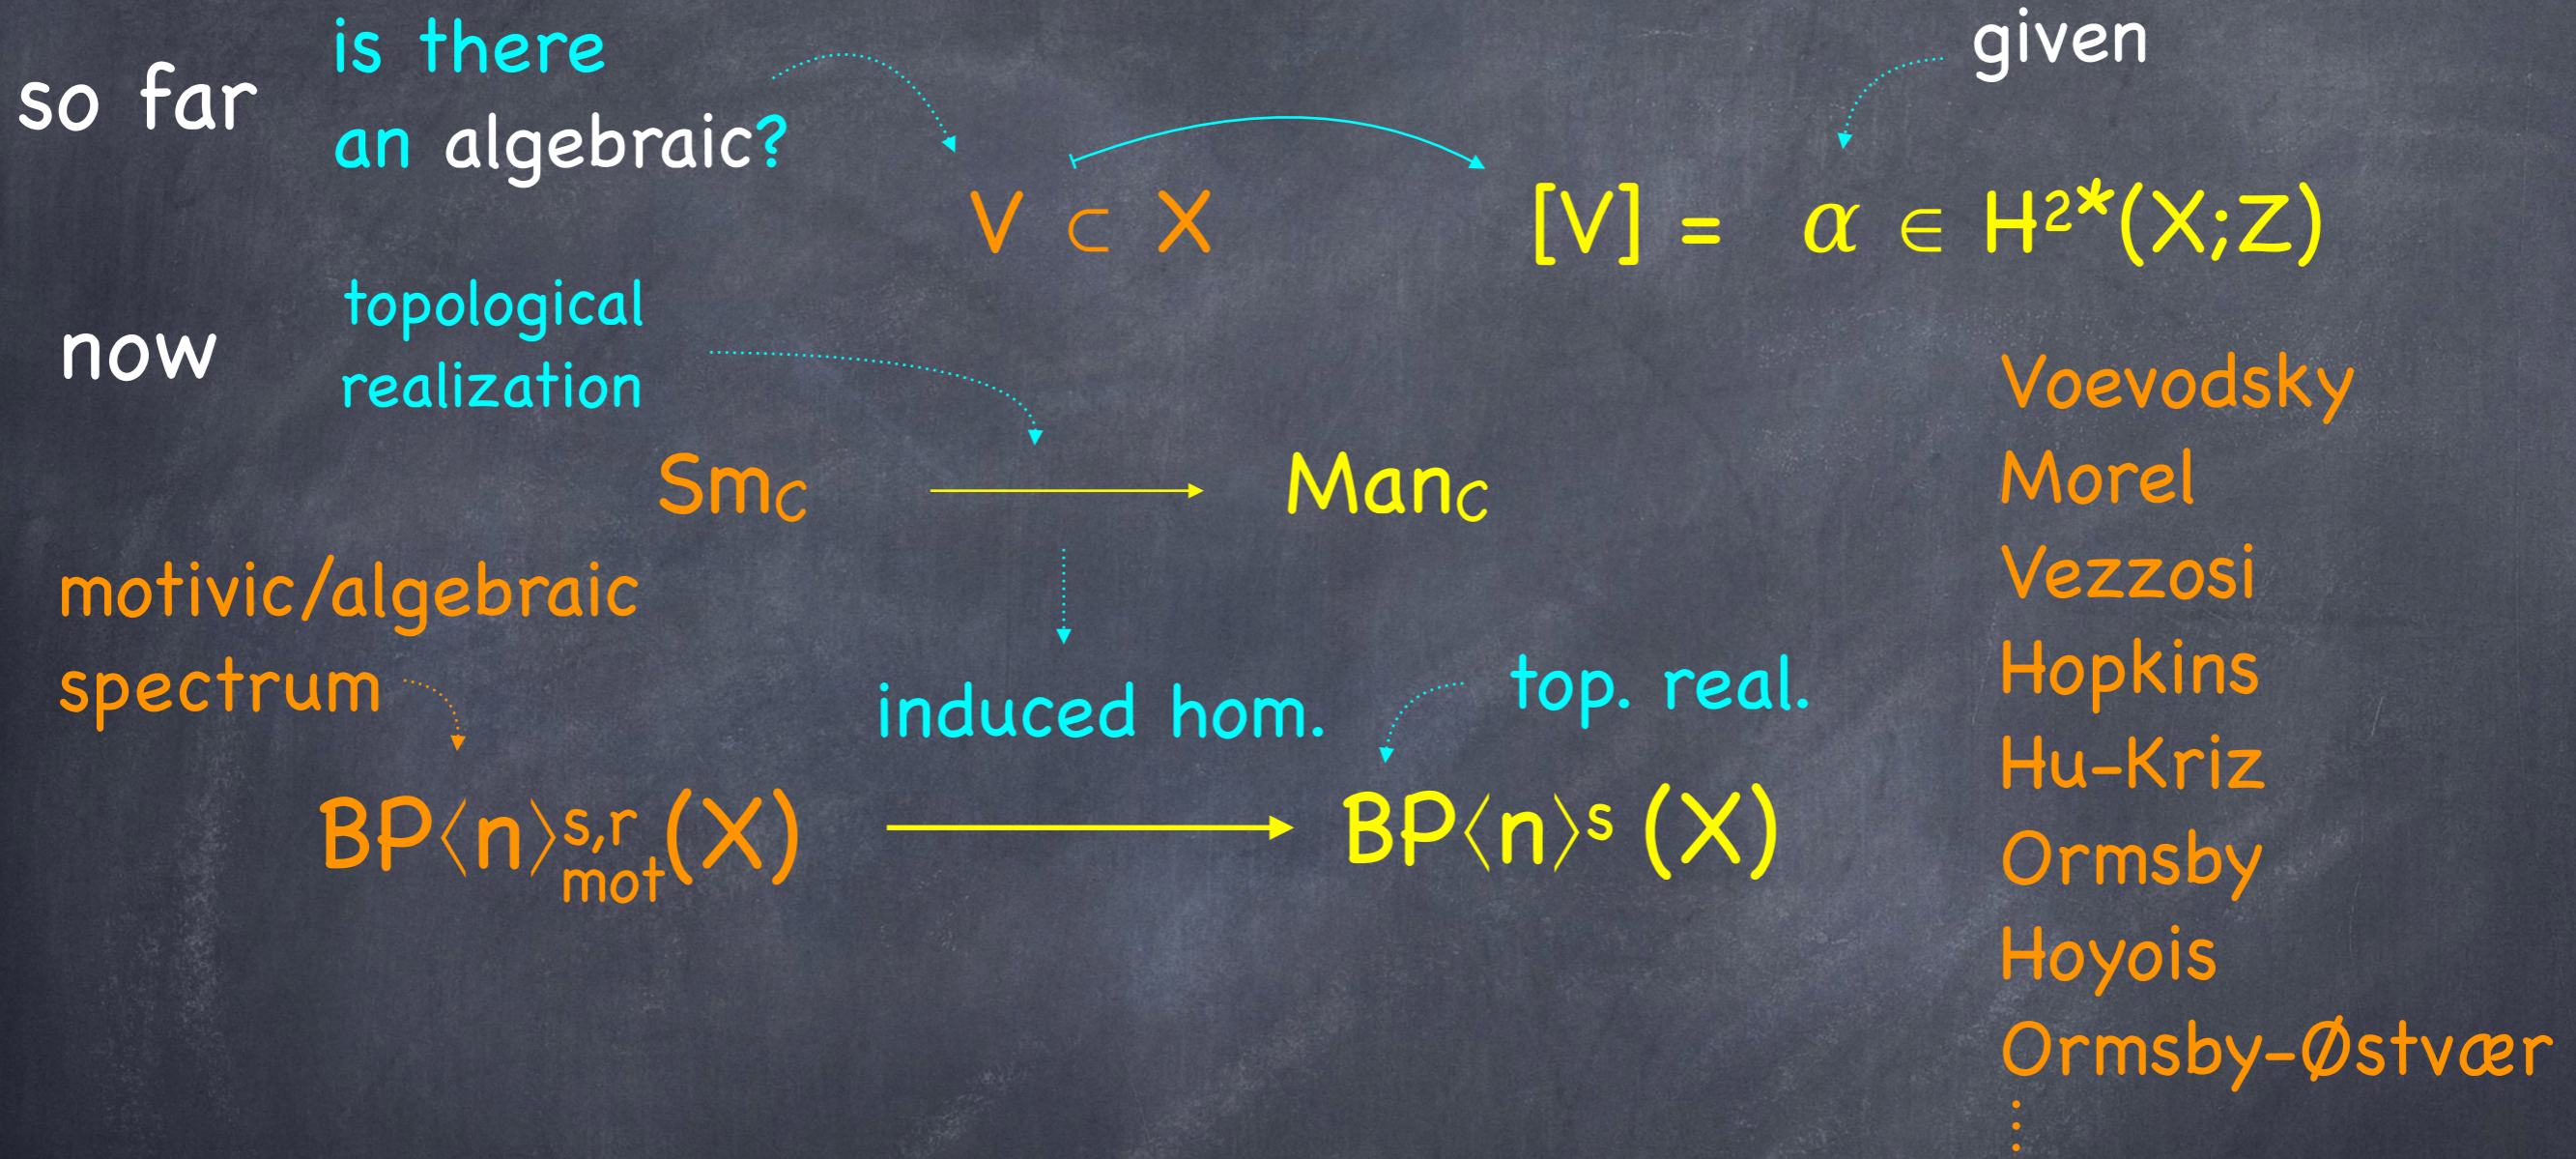 so far
is there
an algebraic?
given
V ⊂ X
[V] = α ∈ H²*(X;Z)
now
topological
realization
Sm_C
Man_C
motivic/algebraic
spectrum
induced hom.
top. real.
BP⟨n⟩^{s,r}_{mot}(X)
BP⟨n⟩^s (X)
Voevodsky
Morel
Vezzosi
Hopkins
Hu-Kriz
Ormsby
Hoyois
Ormsby-Østvær
⋮